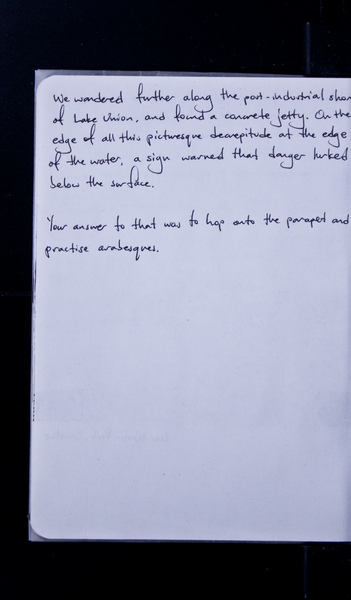 We wandered further along the post-industrial shor
of Lake Union, and found a concrete jetty. On the
edge of all this picturesque decrepitude at the edge
of the water, a sign warned that danger lurked
below the surface.
Your answer to that was to hop onto the parapet and
practise arabesques.